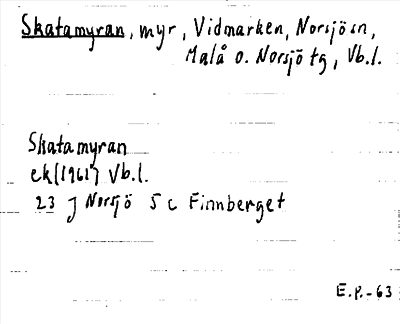 Skatamyran, myr, Vidmarken, Norsjö sn,
Malå o. Norsjö tg, Vb.l.
Skatamyran
ek(1961) Vb.l.
23 J Norsjö 5 c Finnberget
E.P.-63